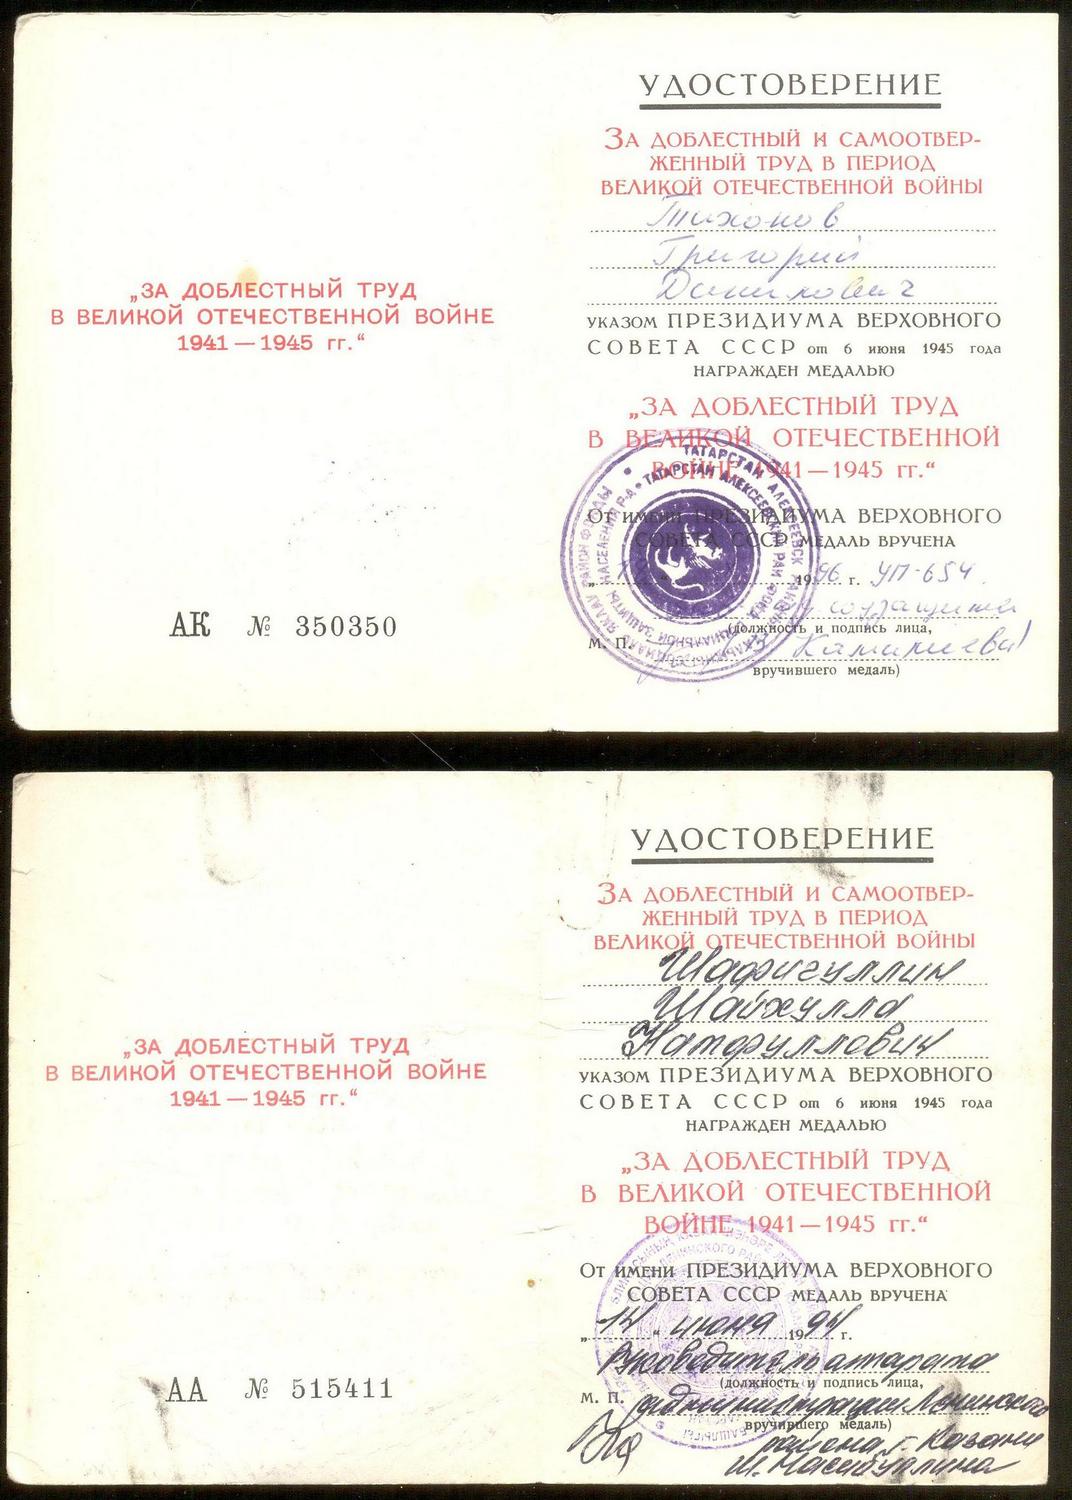 „ЗА ДОБЛЕСТНЫЙ ТРУД
В ВЕЛИКОЙ ОТЕЧЕСТВЕННОЙ ВОЙНЕ
1941 — 1945 гг.“
АК № 350350
УДОСТОВЕРЕНИЕ
ЗА ДОБЛЕСТНЫЙ И САМООТВЕР-
ЖЕННЫЙ ТРУД В ПЕРИОД
ВЕЛИКОЙ ОТЕЧЕСТВЕННОЙ ВОЙНЫ
Тихонов
Григорий
Данилович
УКАЗОМ ПРЕЗИДИУМА ВЕРХОВНОГО
СОВЕТА СССР от 6 июня 1945 года
НАГРАЖДЕН МЕДАЛЬЮ
„ЗА ДОБЛЕСТНЫЙ ТРУД
В ВЕЛИКОЙ ОТЕЧЕСТВЕННОЙ
ВОЙНЕ 1941 — 1945 гг.“
От имени ПРЕЗИДИУМА ВЕРХОВНОГО
СОВЕТА СССР МЕДАЛЬ ВРУЧЕНА
1996 г. УП-654
соцзащиты
(должность и подпись лица,
М. П.
вручившего медаль)
ТАТАРСТАН АЛЕКСЕЕВСК
ТАТАРСТАН АЛЕКСЕЕВСКИЙ
„ЗА ДОБЛЕСТНЫЙ ТРУД
В ВЕЛИКОЙ ОТЕЧЕСТВЕННОЙ ВОЙНЕ
1941 — 1945 гг.“
АА № 515411
УДОСТОВЕРЕНИЕ
ЗА ДОБЛЕСТНЫЙ И САМООТВЕР-
ЖЕННЫЙ ТРУД В ПЕРИОД
ВЕЛИКОЙ ОТЕЧЕСТВЕННОЙ ВОЙНЫ
Шафигуллин
Шайхулла
Натфуллович
УКАЗОМ ПРЕЗИДИУМА ВЕРХОВНОГО
СОВЕТА СССР от 6 июня 1945 года
НАГРАЖДЕН МЕДАЛЬЮ
„ЗА ДОБЛЕСТНЫЙ ТРУД
В ВЕЛИКОЙ ОТЕЧЕСТВЕННОЙ
ВОЙНЕ 1941 — 1945 гг.“
От имени ПРЕЗИДИУМА ВЕРХОВНОГО
СОВЕТА СССР МЕДАЛЬ ВРУЧЕНА
„14“ июня 1994 г.
Руководитель аппарата
(должность и подпись лица,
М. П. администрации Ленинского
вручившего медаль)
района г. Казани
Ш. Насибуллина